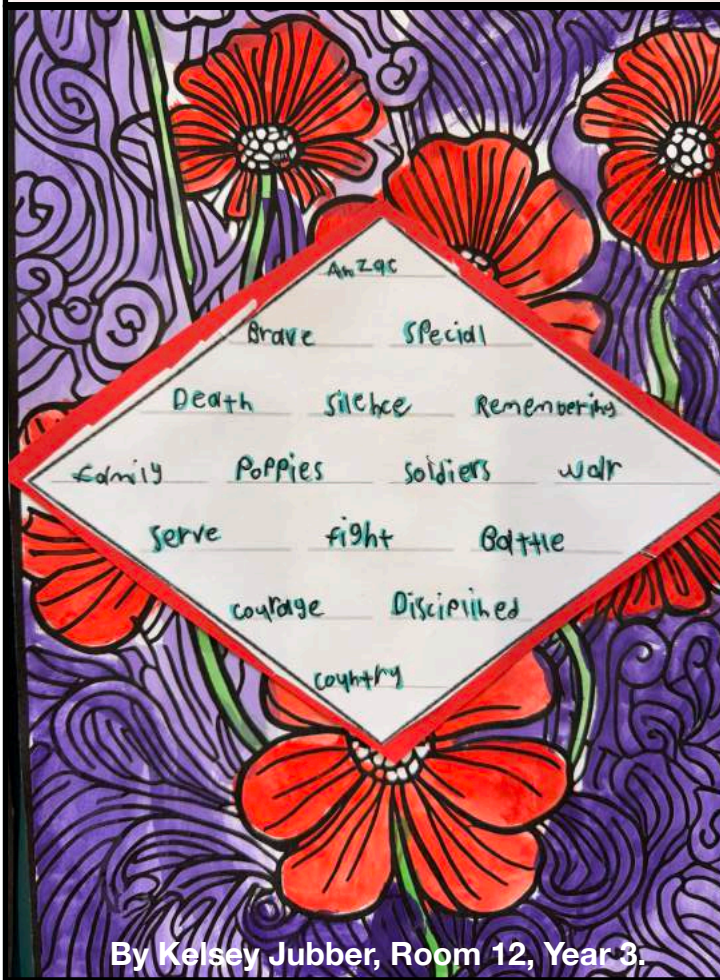 Anzac
Brave Special
Death Silence Remembering
family Poppies soldiers war
serve fight Battle
courage Disciplined
country
By Kelsey Jubber, Room 12, Year 3.